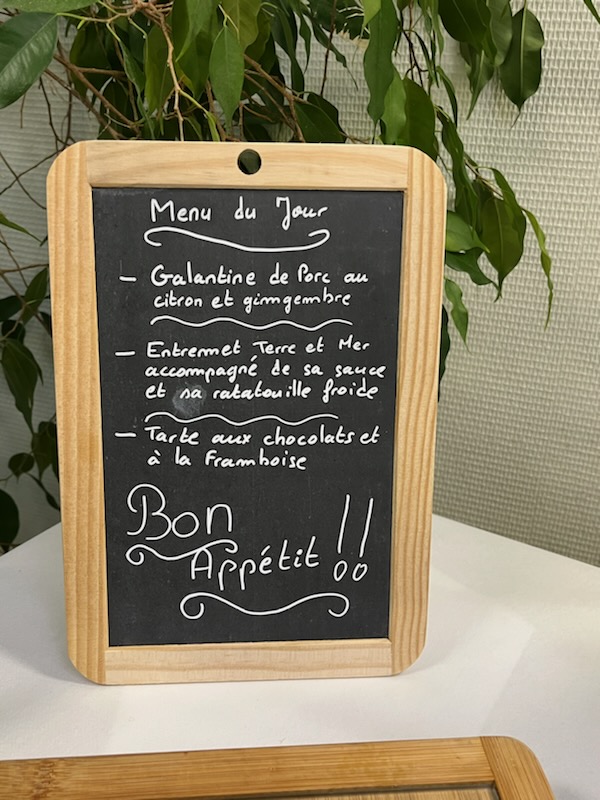 Menu du Jour
- Galantine de Porc au
citron et gimgembre
- Entremet Terre et Mer
accompagné de sa sauce
et sa ratatouille froide
- Tarte aux chocolats et
à la Framboise
Bon
Appétit !!